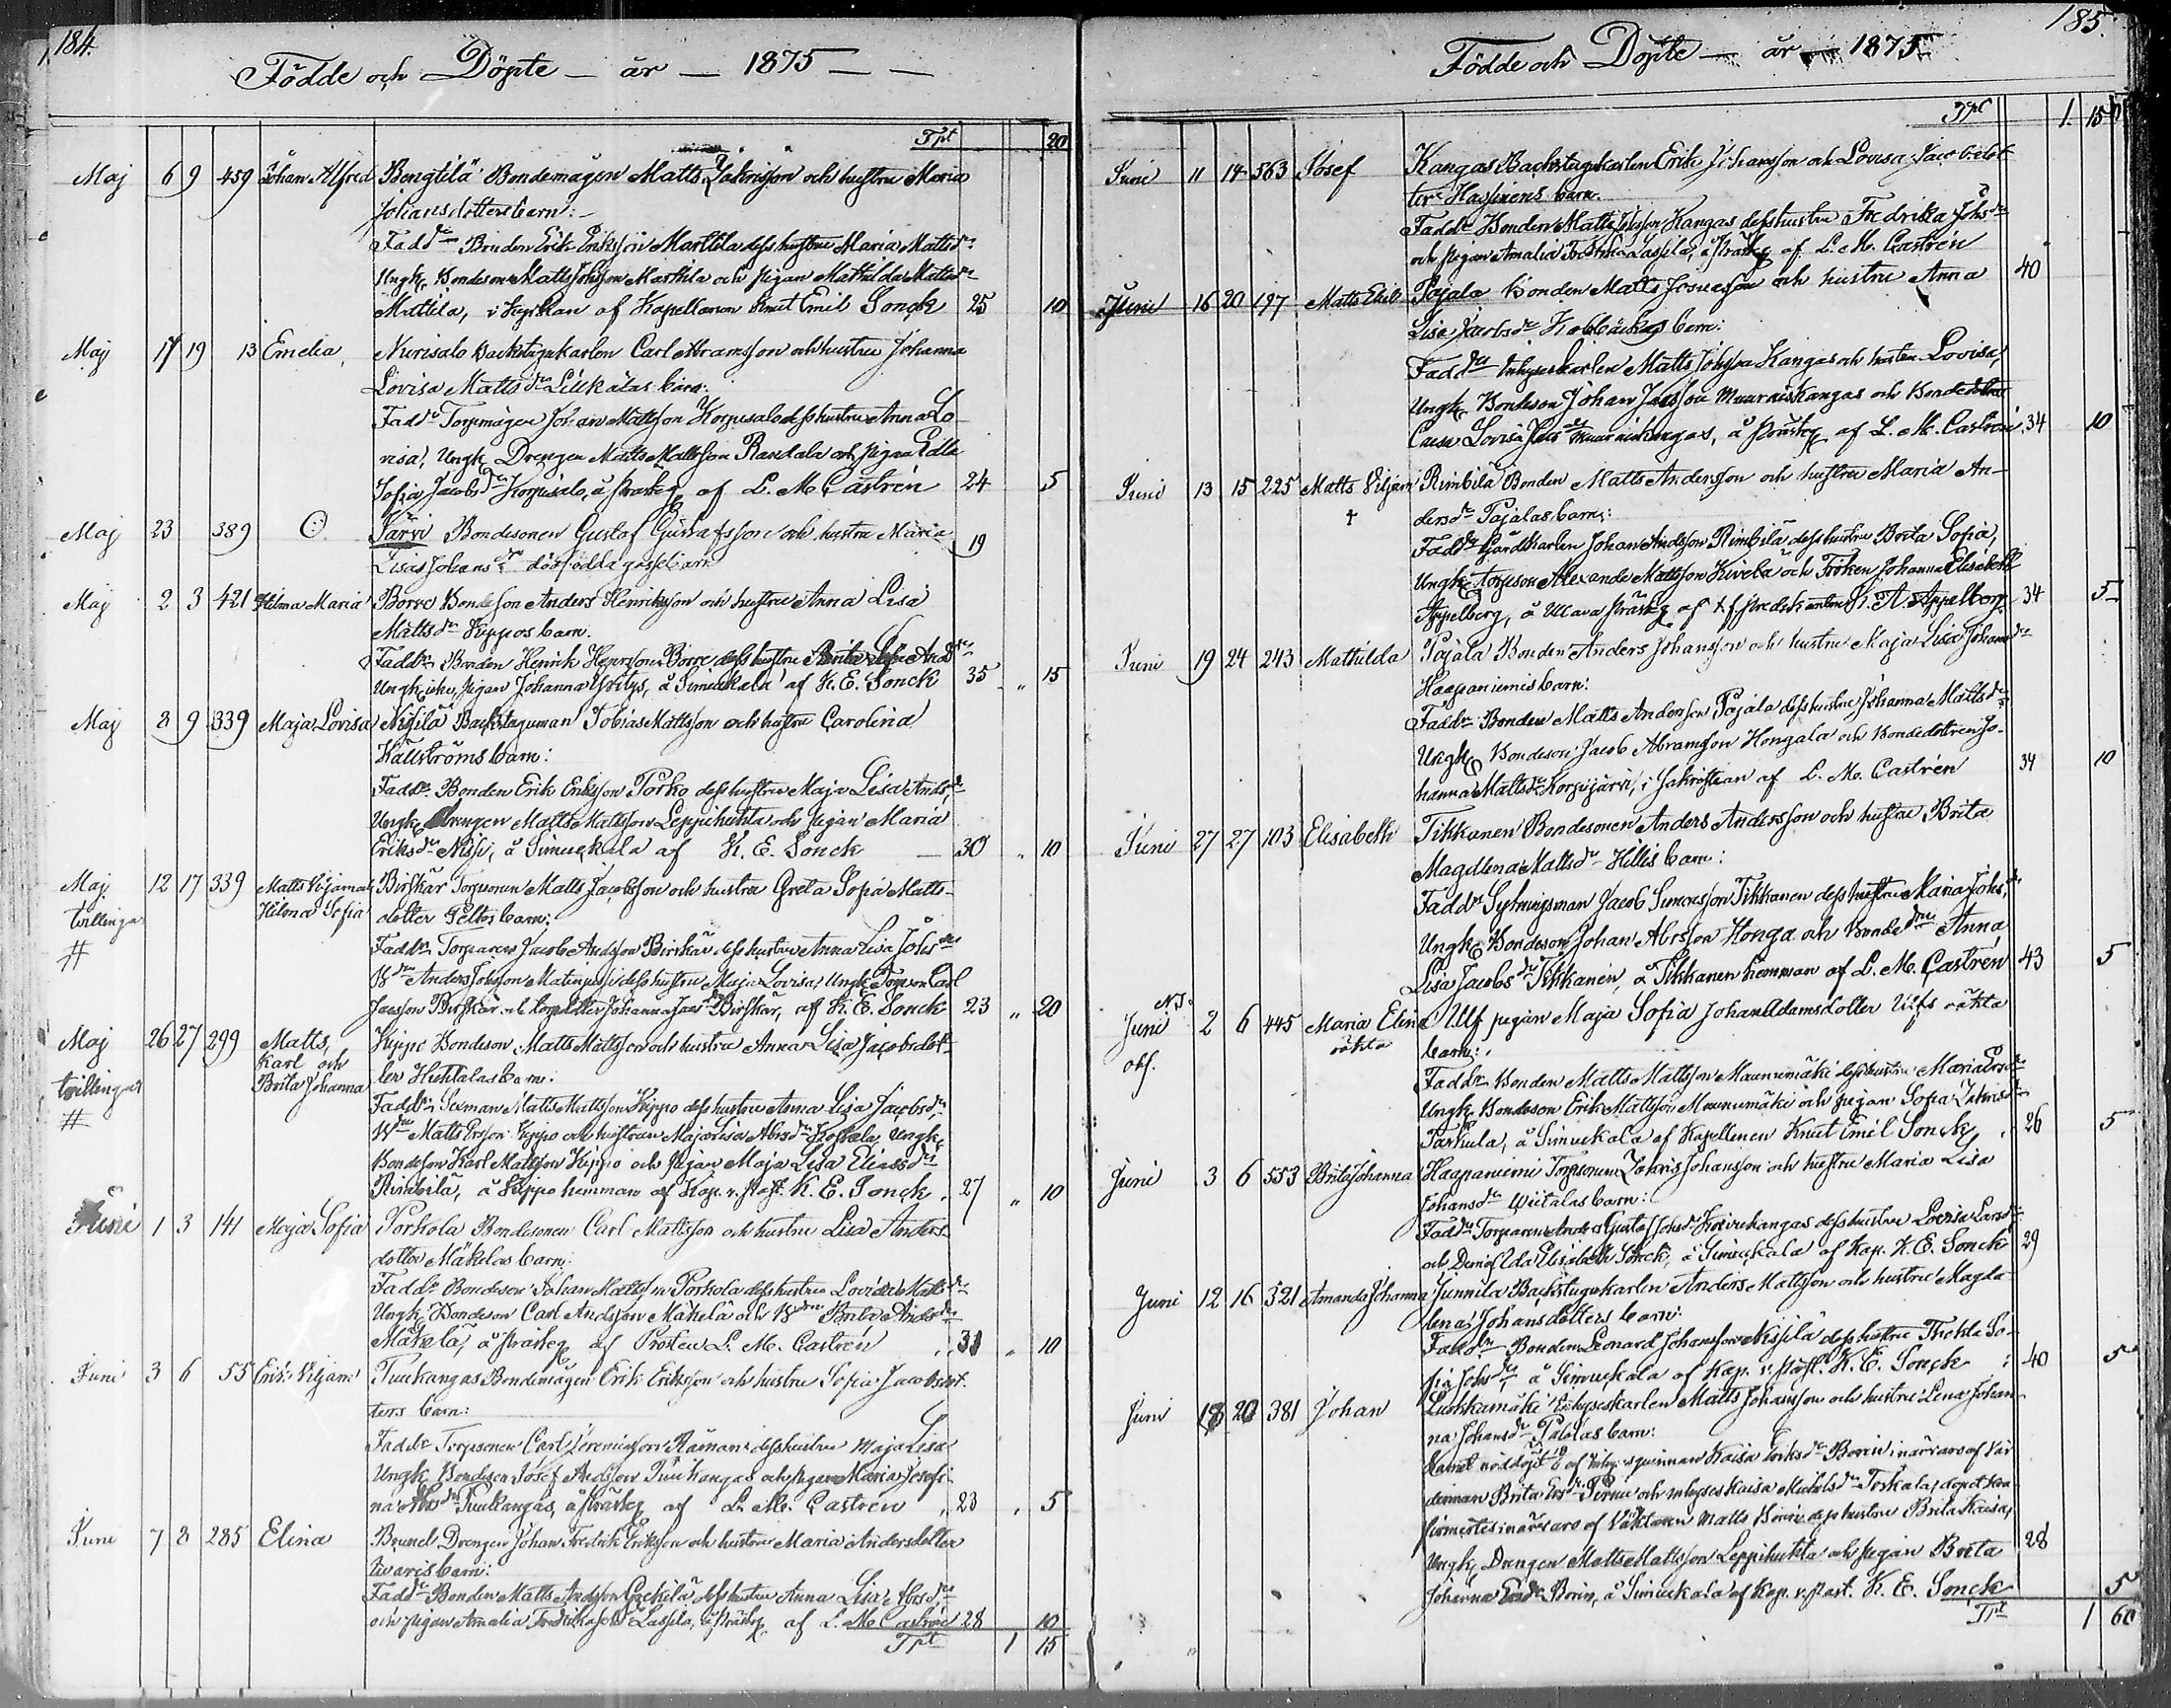 184.
Födde och Döpte – år – 1875 – –
Tpt 20
Maj 6 9 459 Johan Alfred Bengtilä Bondemågen Matts Zakrisson och hustru Maria
Johansdotters barn:
Fadd Bonden Erik Eriksson Marttila dess hustru Maria Mattsdr
Ungk Bondeson Matts Johsson Marttila och pigan Mathilda Mattsdr
Mattila, i Kyrkan af Kapellanen Knut Emil Sonck 25 10
Maj 17 19 13 Emelia, Nurisalo Backstugukarlen Carl Abramsson och hustru Johanna
Lovisa Mattsdr barn:
Faddr Torpmågen Johan Mattsson Korpisalo dess hustru Anna Lo-
visa, Ungk Drengen Matts Mattsson Randala och pigan Edla
Sofia Jacobsdr Korpisalo, å prästg af L. M. Castrén 24 5
Maj 23 389 Järvi Bondesonen Gustaf Gustafsson och hustru Maria
Lisas Johansdr dödfödda gossebarn 19
Maj 2 3 421 Hilma Maria Borre Bondeson Anders Henriksson och hustru Anna Lisa
Mattsdr Kippos barn.
Faddr Bonden Henrik Henrsson Borre, dess hustru Brita Andsdr
Ungk pigan Johanna Yritys, å Simuckala af K. E. Sonck 35 " 15
Maj 8 9 339 Maja Lovisa Nisilä Backstuguman Tobias Mattsson och hustru Carolina
Källströms barn:
Faddr Bonden Erik Eriksson Porko dess hustru Maja Lisa Andsdr
Ungk Drengen Matts Mattsson Leppihuhta och pigan Maria
Eriksdr Nissi, å Simuckala af K. E. Sonck – 30 " 10
Maj 12 17 339 Matts Viljam och Birskär Torparen Matts Jacobsson och hustru Greta Sofia Matts-
tvillingar Hilma Sofia dotter Peltos barn:
# Faddr Torparen Jacob Andsson Birskär dess hustru Anna Lisa Johsdr
Anders Johsson dess hustru Maja Lovisa, Ungk Torpson Carl
Jacsson Birskär och torpdotter Johanna Jacsdr Birskär, af K. E. Sonck 23 " 20
Maj 26 27 299 Matts, Kippo Bondeson Matts Mattsson och hustru Anna Lisa Jacobsdot-
tvillingar Karl och ter Huhtalas barn:
# Brita Johanna
Faddr Sexman Matts Mattsson Kippo dess hustru Anna Lisa Jacobsdr
Matts Ersson Kippo och hustrun Maja Lisa Abrsdr Koskela, Ungk
Bondeson Karl Mattsson Kippo och Pigan Maja Lisa Eliasdr
Rimbilä, å Kippo hemman af Kap. v. past. K. E. Sonck. 27 " 10
Juni 1 3 141 Maja Sofia Porkola Bondesonen Carl Mattsson och hustru Lisa Anders-
dotter Mäkelas barn:
Faddr Bondeson Johan Mattsson Porkola dess hustru Lovisa Mattsdr
Ungk Bondeson Carl Andsson Mäkelä och Brita Andsdr
Mäkelä, å prästg af Prosten L. M. Castrén " 31 " 10
Juni 3 6 55 Erik Viljam Tuukangas Bondemågen Erik Eriksson och hustru Sofia Jacobsdot-
ters barn:
Faddr Torpsonen Carl Jeremiasson Räinän dess hustru Maja Lisa
Ungk Bondeson Josef Andsson Tuukangas och pigan Maria Josefi-
na Tuukangas, å prästg af L. M. Castrén " 23 " 5
Juni 7 8 285 Elina Brunel Drengen Johan Fredrik Eriksson och hustru Maria Andersdotter
barn:
Faddr Bonden Matts Andsson dess hustru Anna Lisa Abrsdr
och pigan Amalia Fredrika Lassila, å prästg af L. M. Castrén 28 10
Tpt 1 15
185.
Födde och Döpte – år – 1875
Tpt 1. 15
Juni 11 14 563 Josef Kangas Backstugukarlen Erik Johansson och Lovisa Jacobsdot
ter Hassinens barn.
Faddr Bonden Matts Johsson Kangas dess hustru Fredrika Johsdr
och pigan Amalia Fredrika Lassila, å prästg af L. M. Castrén 40
Juni 16 20 197 Matts Emil Pajala Bonden Matts Josuasson och hustru Anna
Lisa Jacobsdr barn:
Faddr Inhyseskarlen Matts Johsson Kangas och hustru Lovisa,
Ungk Bondeson Johan Jacsson Muuraiskangas och Bondedotter
Lovisa Jacsdr Muuraiskangas, å prästg af L. M. Castrén 34 10
Juni 13 15 225 Matts Viljam Rimbilä Bonden Matts Andersson och hustru Maria An-
† dersdr Pajalas barn:
Faddr Gårdskarlen Johan Andsson Rimbilä dess hustru Brita Sofia,
Ungk Torpson Alexander Mattsson Kivelä och Fröken Johanna Elisabeth
Appelberg, å Ulava prästg af A. Appelberg 34 5
Juni 19 24 243 Mathilda Pajala Bonden Anders Johansson och hustru Maja Lisa Johansdr
Haapaniemis barn:
Faddr Bonden Matts Andersson Pajala dess hustru Johanna Mattsdr
Ungk Bondeson Jacob Abramsson Hongala och Bondedottren Jo-
hanna Mattsdr Korpijärvi, i Sakristian af L. M. Castrén 34 10
Juni 27 27 103 Elisabeth Tikkanen Bondesonen Anders Andersson och hustru Brita
Magdlena Mattsdr Hillis barn:
Faddr Sytningsman Jacob Simonsson Tikkanen dess hustru Maria Johsdr
Ungk Bondeson Johan Abrsson Honga och Bondedtr Anna
Lisa Jacobsdr Tikkanen, å Tikkanen hemman af L. M. Castrén 43 5
Juni 2 6 445 Maria Elina Ulf pigan Maja Sofia Johan Adamsdotter Ulfs oäkta
obs. oäkta barn:
Faddr Bonden Matts Mattsson Maunumäki dess hustru Maria
Ungk Bondeson Erik Mattsson Maunumäki och pigan Sofia Zakrisdr
Tarkela, å Simuckala af Kapellanen Knut Emil Sonck. 26 5
Juni 3 6 553 Brita Johanna Haapaniemi Torparen Zakris Johansson och hustru Maria Lisa
Johansdr Wiitalas barn:
Faddr Torparen Anders Gustaf Johsn Koivukangas dess hustru Lovisa Larsdr
och Ida Elisabeth Sonck, å Simuckala af Kap. K. E. Sonck 29
Juni 12 16 321 Amanda Johanna Junnila Backstugukarlen Anders Mattsson och hustru Magda-
lena Johansdotters barn:
Faddr Bonden Leonard Johansson Nissilä dess hustru Thekla So-
fia Johsdr, å Simuckala af Kap. v. past. K. E. Sonck 40 5
Juni 18 20 381 Johan Luukkamäki Inhyseskarlen Matts Johansson och hustru Lena Johan-
na Johansdr Palolas barn:
Barnet nöddöpt af Inhysesqvinnan Kaisa Eriksdr i närvaro af Vär
dinnan Brita och inhyses Kaisa Michelsdr Torkala, dopet kon
firmertes i närvaro af Matts dess hustru Brita Kaisa,
Ungk Drengen Matts Mattsson Leppihuhta och pigan Brita 28
Johanna, å Simuckala af Kap. v. past. K. E. Sonck 5
Tpt 1 60